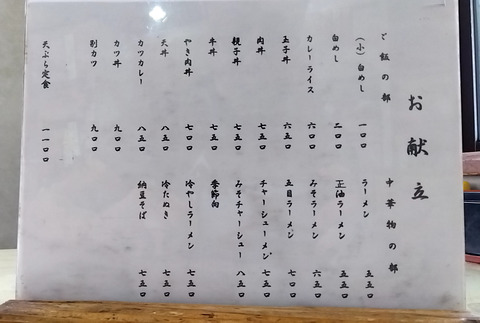 お献立
ご飯の部
(小)白めし 一〇〇
白めし 二〇〇
カレーライス 六〇〇
玉子丼 六五〇
肉丼 七五〇
親子丼 七五〇
牛丼 八五〇
やき肉丼 七〇〇
天丼 八五〇
カツカレー 八五〇
カツ丼 九〇〇
別カツ 九〇〇
天ぷら定食 一一〇〇
中華物の部
ラーメン 五五〇
正油ラーメン 五五〇
みそラーメン 六五〇
五目ラーメン 七〇〇
チャーシューメン 七五〇
みそチャーシュー 八五〇
季節向
冷やしラーメン 七五〇
冷たぬき 七五〇
納豆そば 七五〇